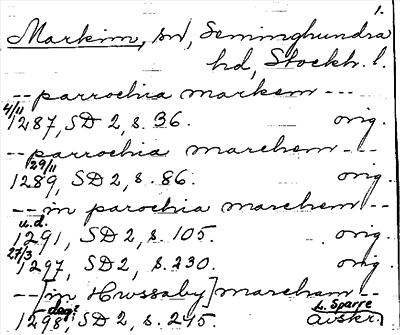 1.
Markim, sn, Seminghundra
hd, Stockh. l.
-- parrochia markem ---
4/11
1287, SD 2, s. 36. orig.
-- parrochia marchem ---
29/11
1289, SD 2, s. 86. orig.
-- in parochia marchem --
u.d.
1291, SD 2, s. 105. orig.
27/3
1297, SD 2, s. 230. orig.
-- [in Hwssaby] marchem --
L. Sparre
1298, SD 2, s. 245. avskr.